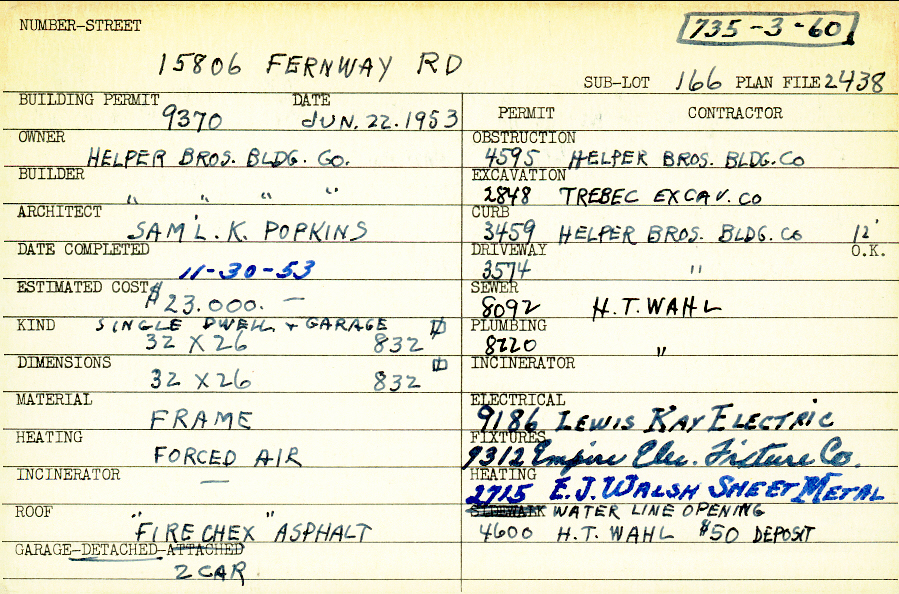 NUMBER-STREET
735-3-60
15806 FERNWAY RD
SUB-LOT 166 PLAN FILE 2438
BUILDING PERMIT DATE
9370 JUN. 22. 1953
OWNER
HELPER BROS. BLDG. CO.
BUILDER
" " " "
ARCHITECT
SAM'L. K. POPKINS
DATE COMPLETED
11-30-53
ESTIMATED COST
$23.000. —
KIND SINGLE DWELL. + GARAGE
32 X 26 832
DIMENSIONS
32 X 26 832
MATERIAL
FRAME
HEATING
FORCED AIR
INCINERATOR
—
ROOF
"FIRE CHEX" ASPHALT
GARAGE-DETACHED-ATTACHED
2 CAR
PERMIT CONTRACTOR
OBSTRUCTION
4595 HELPER BROS. BLDG. CO
EXCAVATION
2848 TREBEC EXCAV. CO
CURB
3459 HELPER BROS. BLDG. CO 12'
DRIVEWAY O.K.
3574 "
SEWER
8092 H. T. WAHL
PLUMBING
8220 "
INCINERATOR
ELECTRICAL
9186 LEWIS KAY ELECTRIC
FIXTURES
9312 Empire Elec. Fixture Co.
HEATING
2715 E. J. WALSH SHEET METAL
SIDEWALK WATER LINE OPENING
4600 H. T. WAHL $50 DEPOSIT